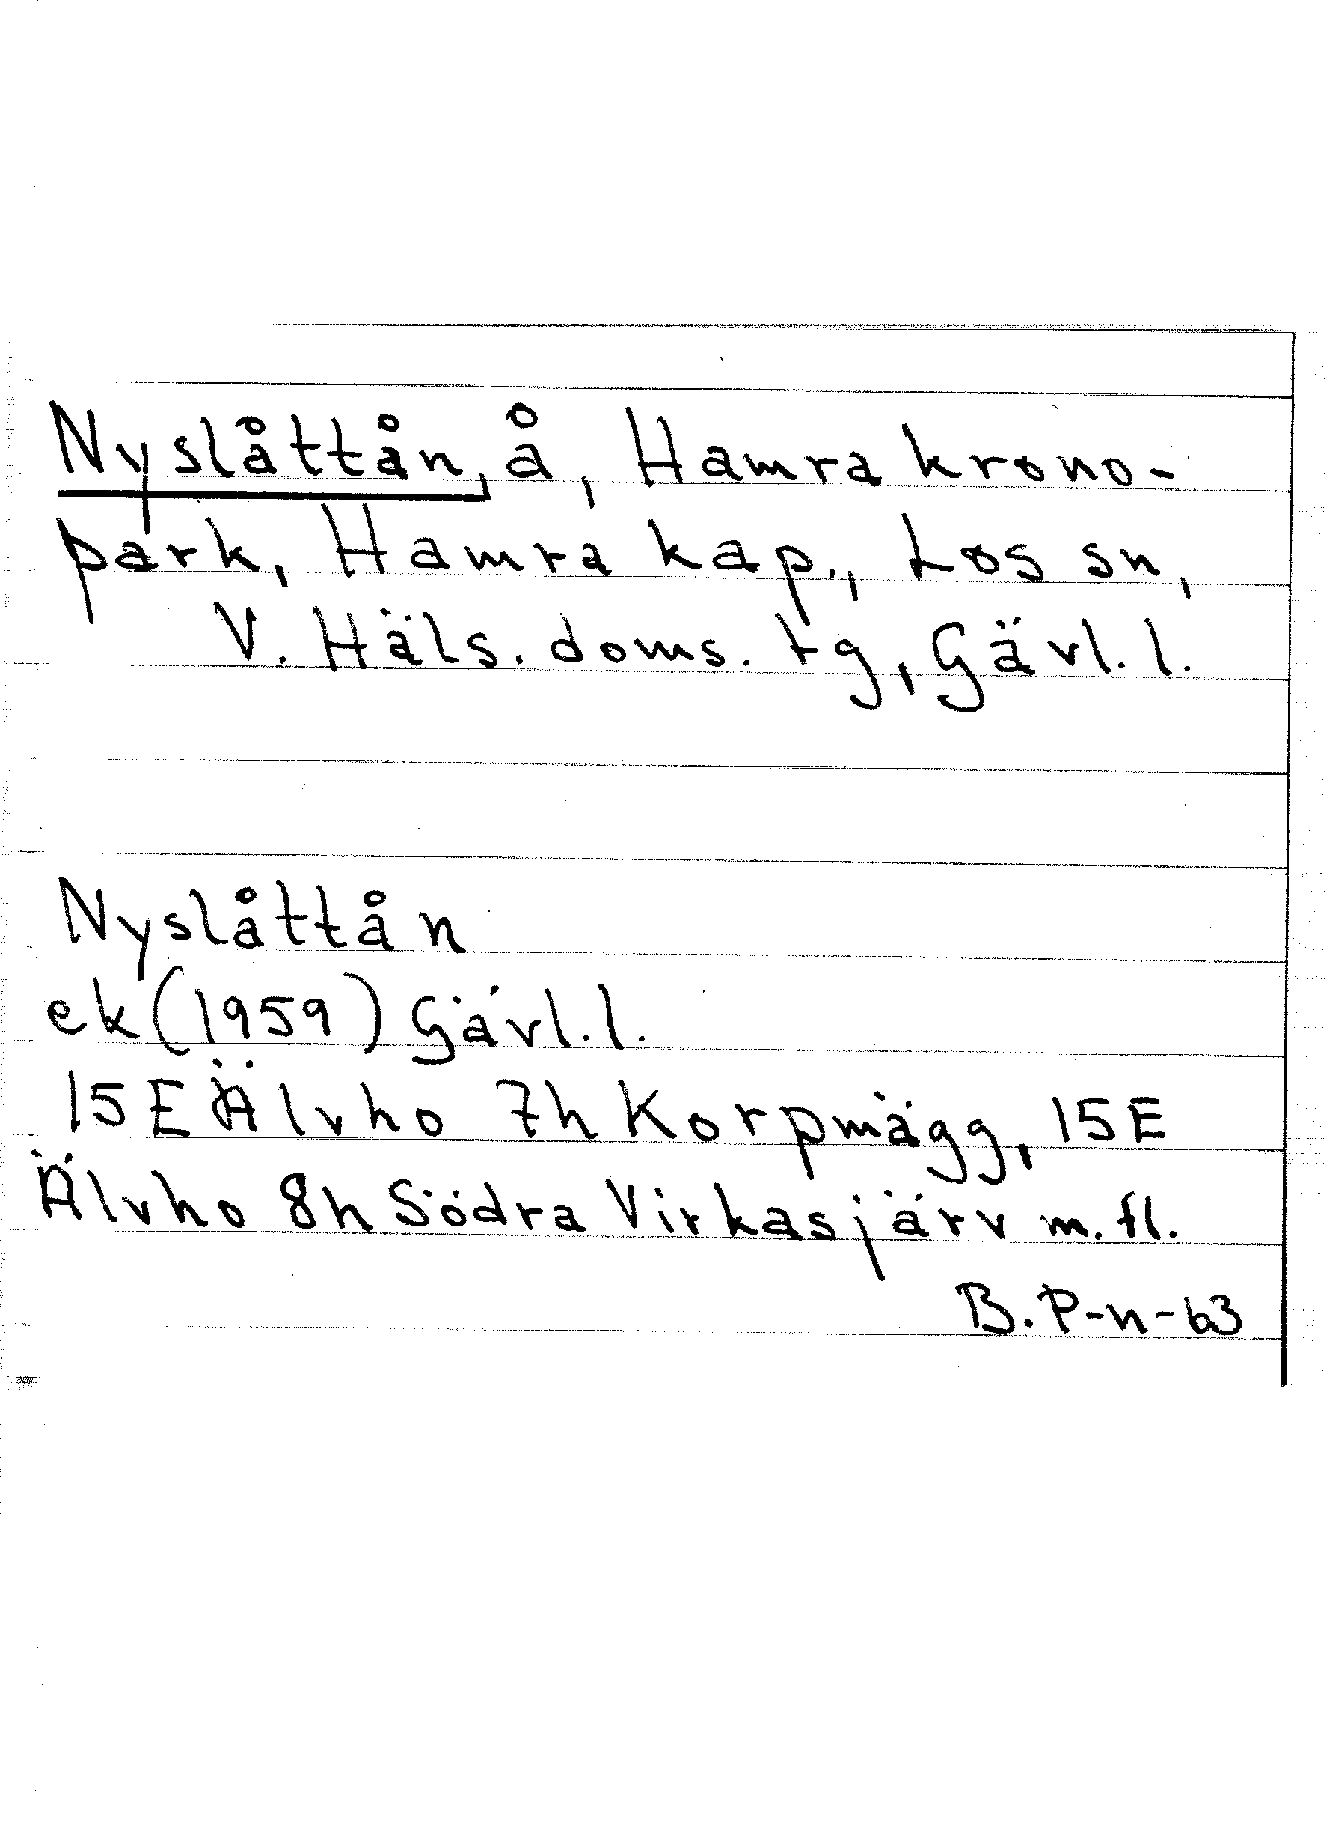 Nyslåttån, å, Hamra krono-
park, Hamra kap., Los sn,
V. Häls. doms. tg, Gävl. l.
Nyslåttån
ek (1959) Gävl. l.
15 E Älvho 7h Korpmägg, 15 E
Älvho 8h Södra Virkasjärv m. fl.
B. P-n-63